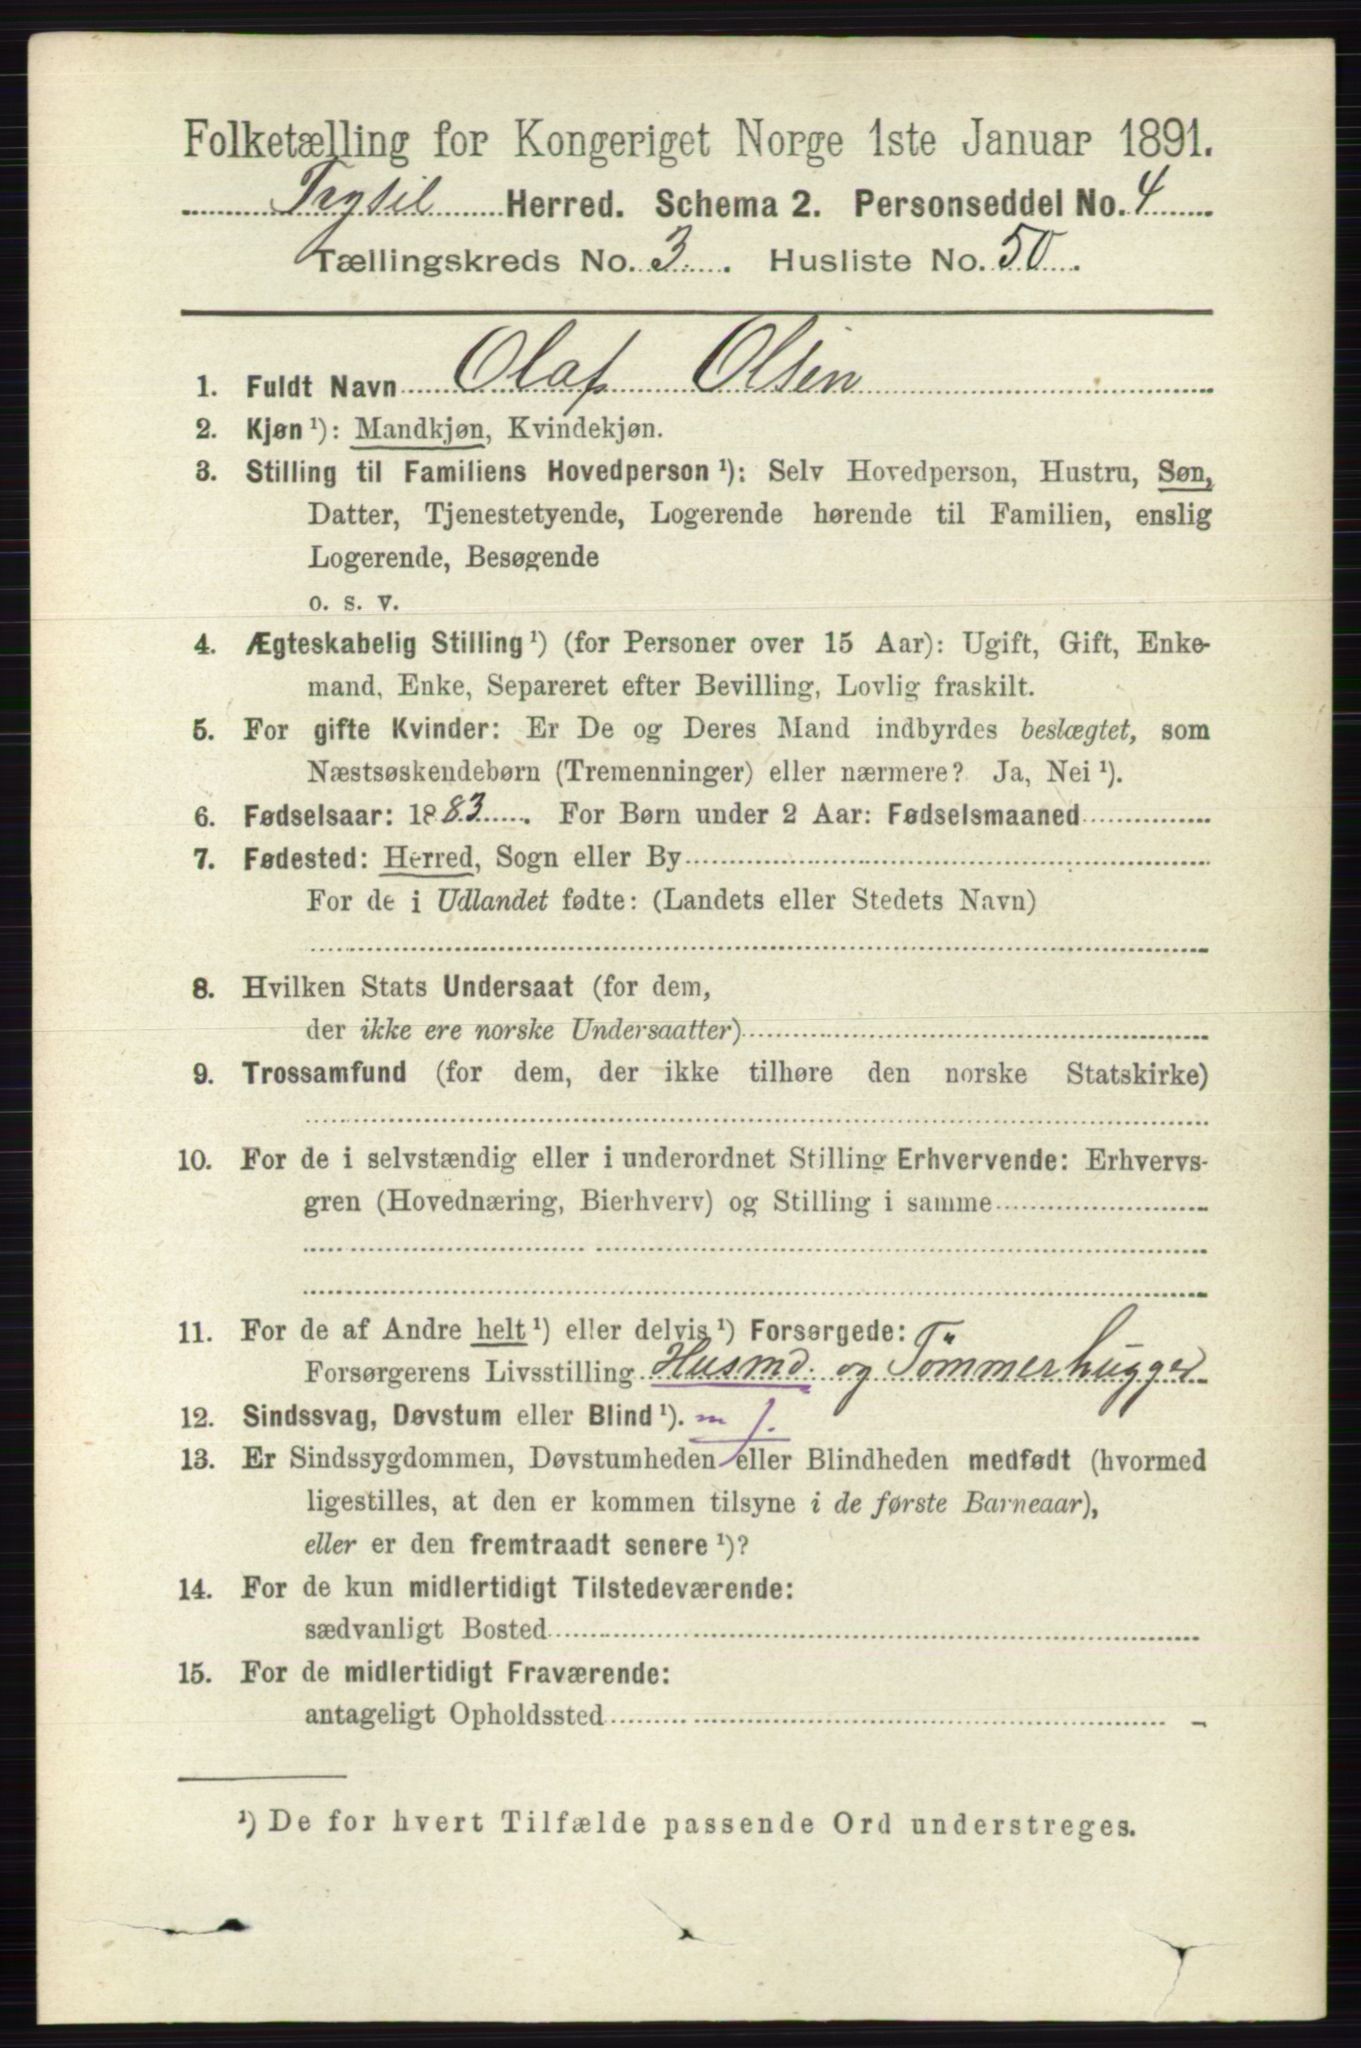 Folketælling for Kongeriget Norge 1ste Januar 1891.
Trysil Herred. Schema 2. Personseddel No. 4
Tællingskreds No. 3. Husliste No. 50.
1. Fuldt Navn Olaf Olsen
2. Kjøn ¹): Mandkjøn, Kvindekjøn.
3. Stilling til Familiens Hovedperson ¹): Selv Hovedperson, Hustru, Søn,
Datter, Tjenestetyende, Logerende hørende til Familien, enslig
Logerende, Besøgende
o. s. v.
4. Ægteskabelig Stilling ¹) (for Personer over 15 Aar): Ugift, Gift, Enke-
mand, Enke, Separeret efter Bevilling, Lovlig fraskilt.
5. For gifte Kvinder: Er De og Deres Mand indbyrdes beslægtet, som
Næstsøskendebørn (Tremenninger) eller nærmere? Ja, Nei ¹).
6. Fødselsaar: 1883. For Børn under 2 Aar: Fødselsmaaned
7. Fødested: Herred, Sogn eller By
For de i Udlandet fødte: (Landets eller Stedets Navn)
8. Hvilken Stats Undersaat (for dem,
der ikke ere norske Undersaatter)
9. Trossamfund (for dem, der ikke tilhøre den norske Statskirke)
10. For de i selvstændig eller i underordnet Stilling Erhvervende: Erhvervs-
gren (Hovednæring, Bierhverv) og Stilling i samme
11. For de af Andre helt ¹) eller delvis ¹) Forsørgede:
Forsørgerens Livsstilling Husmd. og Tömmerhugger
12. Sindssvag, Døvstum eller Blind ¹). m 1.
13. Er Sindssygdommen, Døvstumheden eller Blindheden medfødt (hvormed
ligestilles, at den er kommen tilsyne i de første Barneaar),
eller er den fremtraadt senere ¹)?
14. For de kun midlertidigt Tilstedeværende:
sædvanligt Bosted
15. For de midlertidigt Fraværende:
antageligt Opholdssted
¹) De for hvert Tilfælde passende Ord understreges.